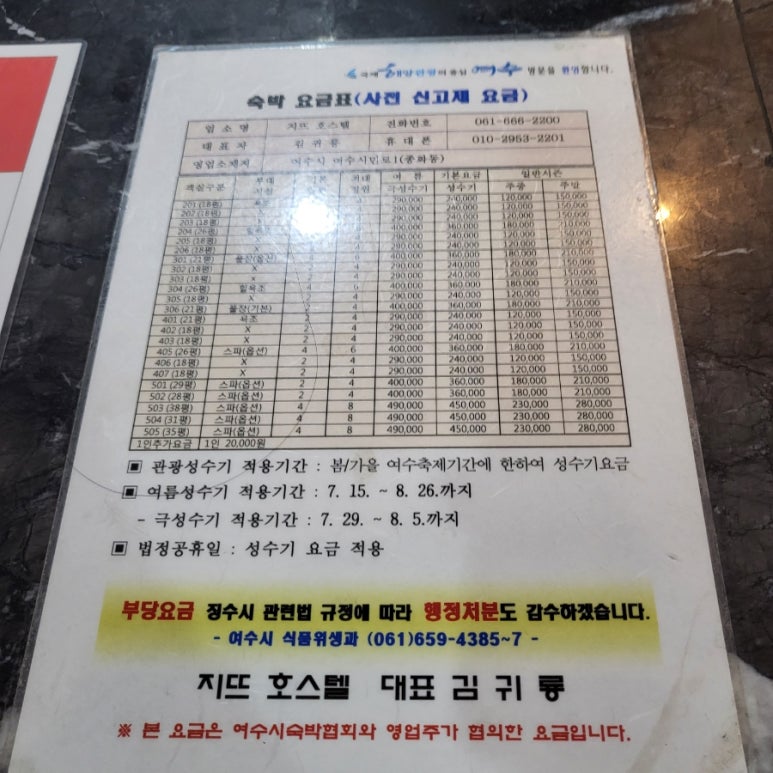 국제 해양관광의 중심 여수 방문을 환영합니다.
숙박 요금표(사전 신고제 요금)
업 소 명 지뜨 호스텔 전화번호 061-666-2200
대 표 자 김귀룡 휴 대 폰 010-2953-2201
영업소재지 여수시 여수시민로1(종화동)
객실구분 부대시설 기본 최대정원 여 름 극성수기 기본요금 성수기 일반시즌 주중 주말
201 (18평) 욕조 290,000 240,000 120,000 150,000
202 (18평) X 290,000 240,000 120,000 150,000
203 (18평) 290,000 240,000 120,000 150,000
204 (26평) 400,000 360,000 180,000 210,000
205 (18평) X 290,000 240,000 120,000 150,000
206 (18평) X 290,000 240,000 120,000 150,000
301 (21평) 풀장(옵션) 400,000 360,000 180,000 210,000
302 (18평) X 4 290,000 240,000 120,000 150,000
303 (18평) X 2 4 290,000 240,000 120,000 150,000
304 (26평) 힐욕조 4 6 400,000 360,000 180,000 210,000
305 (18평) X 2 4 290,000 240,000 120,000 150,000
306 (21평) 풀장(기본) 2 4 400,000 360,000 180,000 210,000
401 (21평) 욕조 2 4 290,000 240,000 120,000 150,000
402 (18평) X 2 4 290,000 240,000 120,000 150,000
403 (18평) X 2 4 290,000 240,000 120,000 150,000
405 (26평) 스파(옵션) 4 6 400,000 360,000 180,000 210,000
406 (18평) X 2 4 290,000 240,000 120,000 150,000
407 (18평) X 2 4 290,000 240,000 120,000 150,000
501 (29평) 스파(옵션) 2 4 400,000 360,000 180,000 210,000
502 (28평) 스파(옵션) 2 4 400,000 360,000 180,000 210,000
503 (38평) 스파(옵션) 4 8 490,000 450,000 230,000 280,000
504 (31평) 스파(옵션) 4 8 490,000 450,000 230,000 280,000
505 (35평) 스파(옵션) 4 8 490,000 450,000 230,000 280,000
1인추가요금 1인 20,000원
▣ 관광성수기 적용기간 : 봄/가을 여수축제기간에 한하여 성수기요금
▣ 여름성수기 적용기간 : 7. 15. ~ 8. 26.까지
- 극성수기 적용기간 : 7. 29. ~ 8. 5.까지
▣ 법정공휴일 : 성수기 요금 적용
부당요금 징수시 관련법 규정에 따라 행정처분도 감수하겠습니다.
- 여수시 식품위생과 (061)659-4385~7 -
지뜨 호스텔 대표 김 귀 룡
※ 본 요금은 여수시숙박협회와 영업주가 협의한 요금입니다.